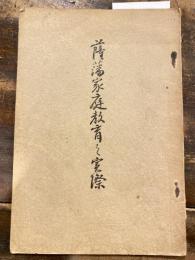 薩藩家庭教育之実際